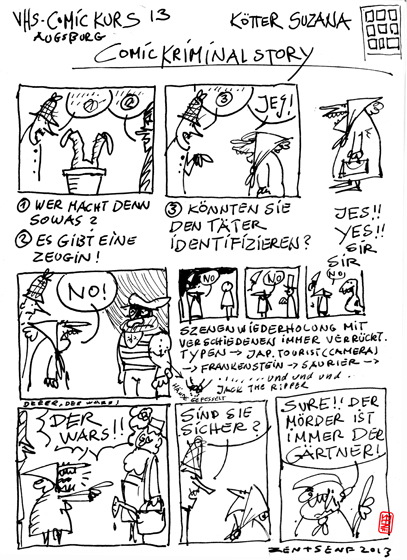 VHS-COMIC KURS 13
AUGSBURG
KÖTTER SUZANA
COMICKRIMINALSTORY
① ②
③ JES!
① WER MACHT DENN
SOWAS?
② ES GIBT EINE
ZEUGIN!
③ KÖNNTEN SIE
DEN TÄTER
IDENTIFIZIEREN?
JES!!
YES!!
SIR
SIR
NO!
NO
NO
NO
SZENENWIEDERHOLUNG MIT
VERSCHIEDENEN IMMER VERRÜCKT.
TYPEN → JAP. TOURIST (CAMERA)
→ FRANKENSTEIN → SAURIER →
und und und..
JACK THE RIPPER
HÄNDE
GEFESSELT
DERER, DER WARS!
DER
WARS!!
SIND SIE
SICHER?
SURE!! DER
MÖRDER IST
IMMER DER
GÄRTNER!
ZENTSENF 2013